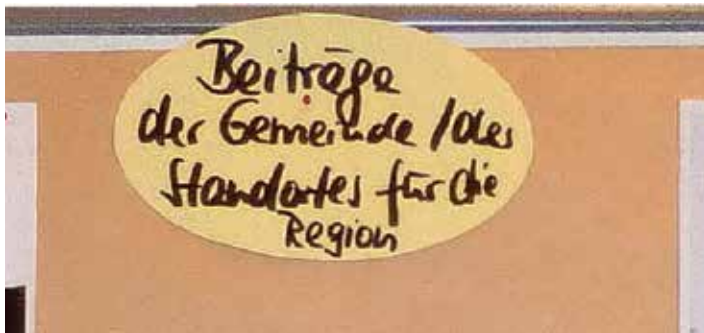 Beiträge
der Gemeinde / des
Standortes für die
Region